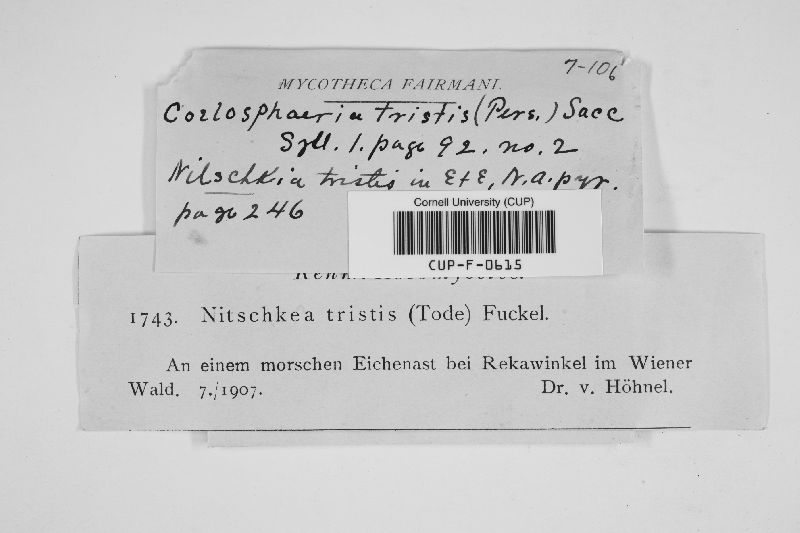 7-106
MYCOTHECA FAIRMANI.
Coelosphaeria tristis (Pers.) Sacc
Syll. 1. page 92. no. 2
Nitschkia tristis in E & E, N.a.pyr.
page 246
Cornell University (CUP)
CUP-F-0615
1743. Nitschkea tristis (Tode) Fuckel.
An einem morschen Eichenast bei Rekawinkel im Wiener
Wald. 7./1907. Dr. v. Höhnel.